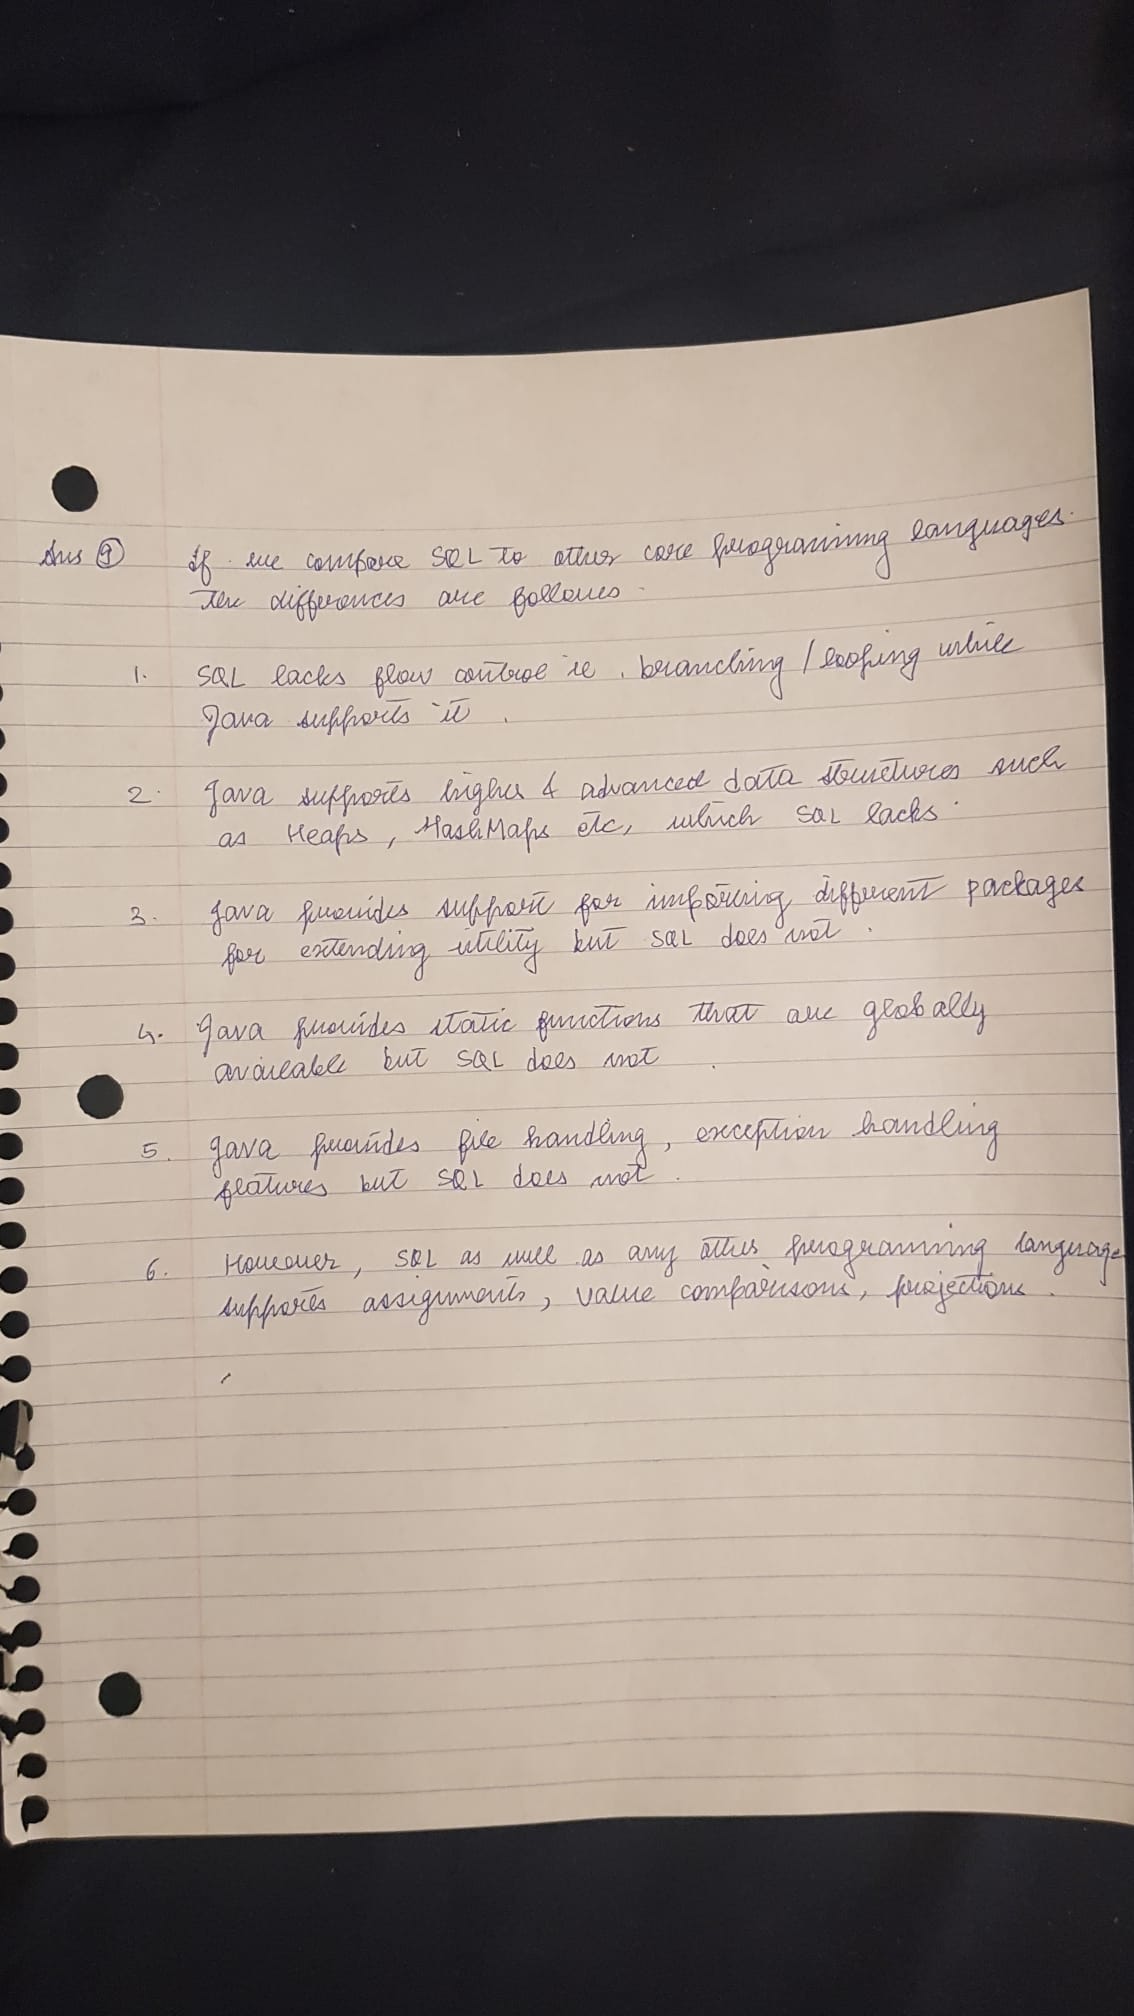 Ans 9 If we compare SQL to other core programming languages.
The differences are follows.
1. SQL lacks flow control ie. branching / looping while
Java supports it.
2. Java supports higher & advanced data structures such
as Heaps, HashMaps etc, which SQL lacks.
3. Java provides support for importing different packages
for extending utility but SQL does not.
4. Java provides static functions that are globally
available but SQL does not.
5. Java provides file handling, exception handling
features but SQL does not.
6. However, SQL as well as any other programming language
supports assignments, value comparisons, projections.